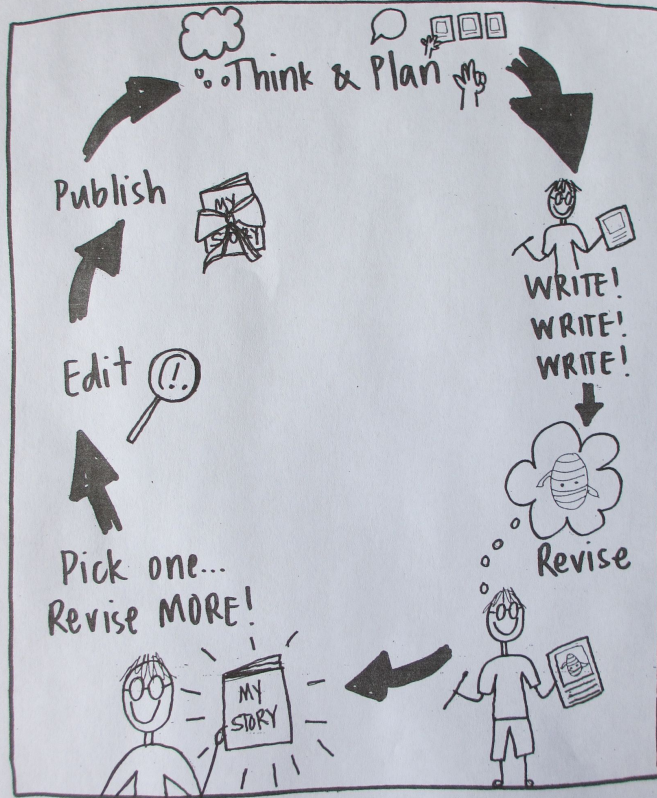 Think & Plan
WRITE!
WRITE!
WRITE!
Revise
MY
STORY
Pick one...
Revise MORE!
Edit
!!
Publish
MY
STORY